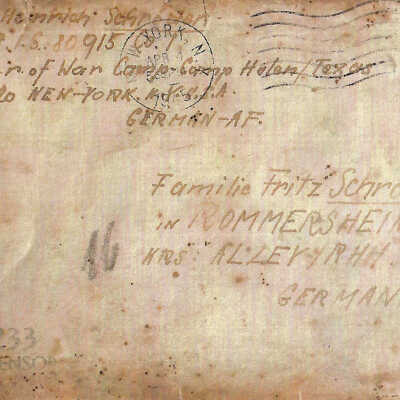 Heinrich Schr
I.S. 80915
YORK, N
APR
r of War Camp-Camp Holen/Texas
NEW-YORK. N.Y. U.S.A.
GERMAN-AF.
Familie Fritz Schro
in ROMMERSHEI
16
KRS: ALZEY/RHH
GERMAN
233
ENSO